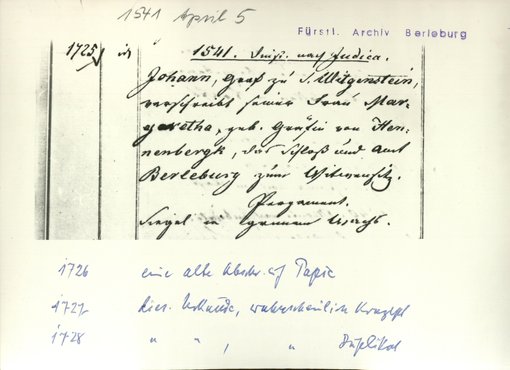 1541 April 5
Fürstl. Archiv Berleburg
1725
1541. Dinst. nach Judica.
Johann, Graf zu S. Witgenstein,
verschreibt seiner Frau Mar-
garetha, geb. Gräfin von Hen-
nenbergk, das Schloß und Amt
Berleburg zum Witwensitz.
Pergament.
Siegel in grünem Wachs.
1726 eine alte auf Papier
1727 dies. Urkunde, wahrscheinlich Konzept
1728 " " , " Duplikat